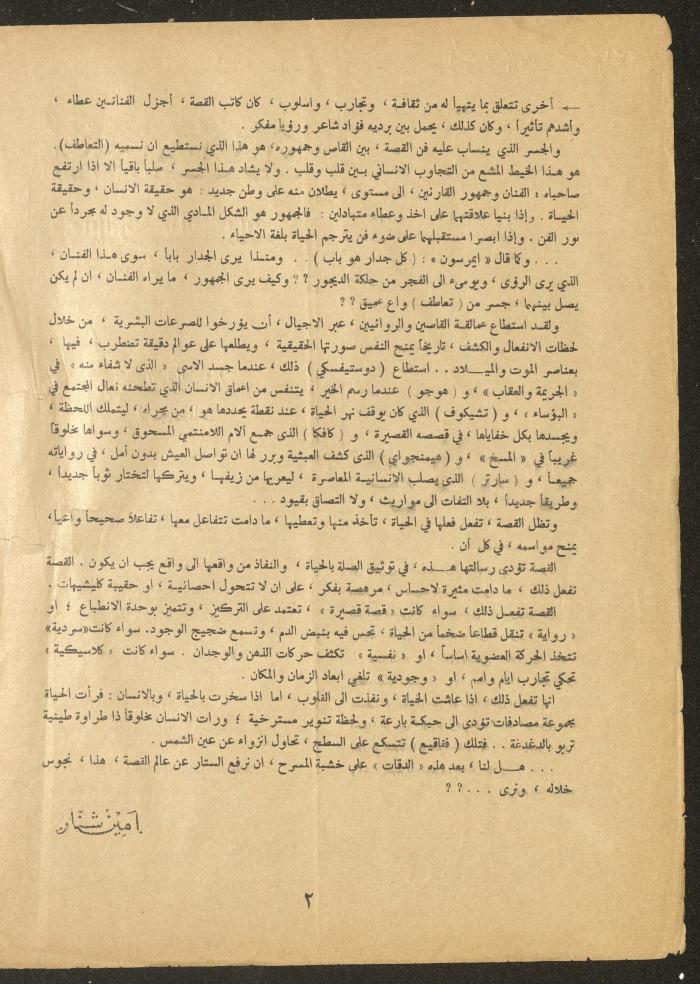 ← أخرى تتعلق بما يتهيأ له من ثقافة ، وتجارب ، واسلوب ، كان كاتب القصة ، أجزل الفنانين عطاء ،
وأشدهم تأثيراً ، وكان كذلك ، يحمل بين برديه فؤاد شاعر ورؤيا مفكر .
والجسر الذي ينساب عليه فن القصة ، بين القاص وجمهوره، هو هذا الذي نستطيع ان نسميه (التعاطف).
هو هذا الخيط المشع من التجاوب الانساني بين قلب وقلب . ولا يشاد هذا الجسر ، صلباً باقياً الا اذا ارتفع
صاحباه : الفنان وجمهور القارئين ، الى مستوى ، يطلان منه على وطن جديد : هو حقيقة الانسان ، وحقيقة
الحياة . وإذا بنيا علاقتهما على اخذ وعطاء متبادلين : فالجمهور هو الشكل المادي الذي لا وجود له مجرداً عن
نور الفن . وإذا ابصرا مستقبلهما على ضوء فن يترجم الحياة بلغة الاحياء .
. . . وكما قال « ايمرسون » : ( كل جدار هو باب ) . . ومنذا يرى الجدار باباً ، سوى هذا الفنان ،
الذي يرى الرؤى ، ويومىء الى الفجر من حلكة الديجور ؟ ؟ وكيف يرى الجمهور ، ما يراه الفنان ، ان لم يكن
يصل بينهما ، جسر من ( تعاطف ) واع عميق ؟ ؟
ولقد استطاع عمالقة القاصين والروائيين ، عبر الاجيال ، أن يؤرخوا للصرعات البشرية ، من خلال
لحظات الانفعال والكشف ، تاريخاً يمنح النفس صورتها الحقيقية ، ويطلعها على عوالم دقيقة تضطرب ، فيها ،
بعناصر الموت والميلاد . . استطاع ( دوستيفسكي ) ذلك ، عندما جسد الاسى « الذى لا شفاء منه » في
« الجريمة والعقاب » ، و ( هوجو ) عندما رسم الخير ، يتنفس من اعماق الانسان الذي تطحنه نعال المجتمع في
« البؤساء » ، و ( تشيكوف ) الذي كان يوقف نهر الحياة ، عند نقطة يحددها هو ؛ من مجراه ، ليتملك اللحظة ،
ويجسدها بكل خفاياها ، في قصصه القصيرة ، و ( كافكا ) الذى جمع آلام اللامنتمي المسحوق ، وسواها مخلوقاً
غريباً في « المسخ » ، و ( هيمنجواي ) الذى كشف العبثية وبرر لها ان تواصل العيش بدون أمل ، في رواياته
جميعاً ، و ( سارتر ) الذي يصلب الانسانية المعاصرة ، ليعريها من زيفها ، ويتركها لتختار ثوباً جديداً ،
وطريقاً جديداً ، بلا التفات الى مواريث ، ولا التصاق بقيود . . .
وتظل القصة ، تفعل فعلها في الحياة ، تأخذ منها وتعطيها ، ما دامت تتفاعل معها ، تفاعلاً صحيحاً واعياً،
يمنح مواسمه ، في كل آن .
القصة تؤدي رسالتها هذه ، في توثيق الصلة بالحياة ، والنفاذ من واقعها الى واقع يجب ان يكون . القصة
تفعل ذلك ، ما دامت مثيرة لاحساس ، مرهصة بفكر ، على ان لا تتحول احصائية ، او حقيبة كليشيهات .
القصة تفعل ذلك ، سواء كانت « قصة قصيرة » ، تعتمد على التركيز ، وتتميز بوحدة الانطباع ؛ او
« رواية » تنقل قطاعاً ضخماً من الحياة ، تحس فيه بنبض الدم ، وتسمع ضجيج الوجود. سواء كانت«سردية»
تتخذ الحركة العضوية اساساً ، او « نفسية » تكثف حركات الذهن والوجدان . سواء كانت « كلاسيكية »
تحكي تجارب ايام وامم ، او « وجودية » تلغي ابعاد الزمان والمكان .
انها تفعل ذلك ، اذا عاشت الحياة ، ونفذت الى القلوب ، اما اذا سخرت بالحياة ، وبالانسان : فرأت الحياة
مجموعة مصادفات تؤدى الى حبكة بارعة ، ولحظة تنوير مسترخية ؛ ورات الانسان مخلوقاً ذا طراوة طينية
تربو بالدغدغة . . فتلك ( فقاقيع ) تتسكع على السطح ، تحاول انزواء عن عين الشمس .
. . . هل لنا ، بعد هذه « الدقات » على خشبة المسرح ، ان نرفع الستار عن عالم القصة ، هذا ، نجوس
خلاله ، ونرى . . . ؟ ؟
امين شنار
٢